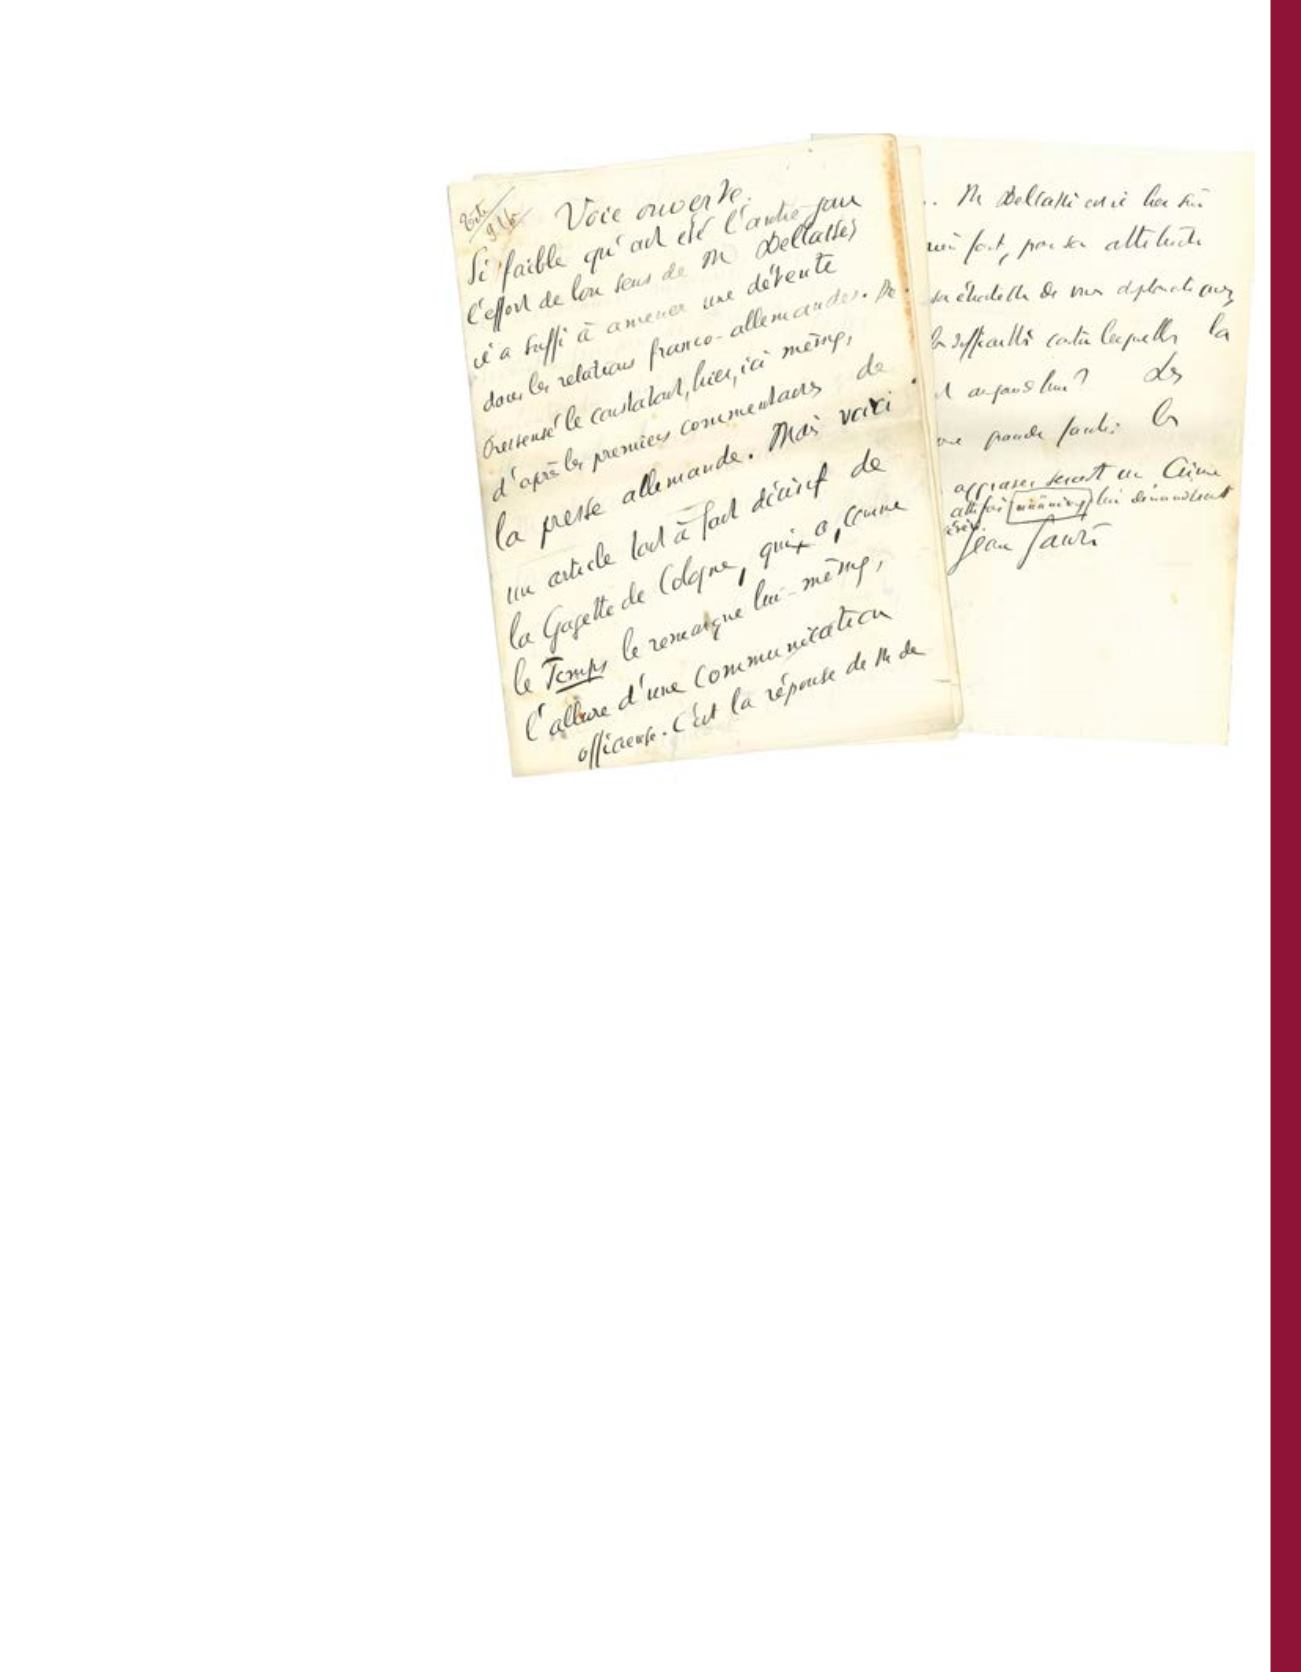 Voie ouverte.
Si faible qu'ait été l'autre jour
l'effort de bon sens de M Delcassé,
il a suffi à amener une détente
dans les relations franco-allemandes. De
Pressensé le constatait, hier, ici même,
d'après les premiers commentaires de
la presse allemande. Mais voici
un article tout à fait décisif de
la Gazette de Cologne, qui a, comme
le Temps le remarque lui-même,
l'allure d'une communication
officieuse. C'est la réponse de M de
M Delcassé est-il bien sûr
rien fait, par son attitude
de vues diplomatiques,
les difficultés contre lesquelles la
aujourd'hui? Les
une grande faute: les
aggraver serait un crime
Jean Jaurès